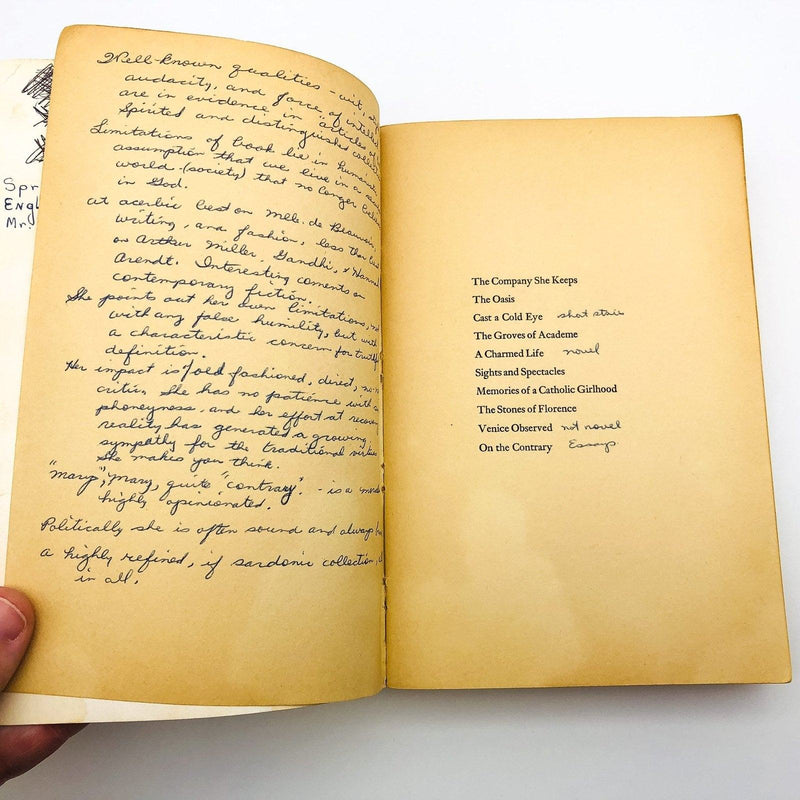 Spr
Engl
Mr.
Well-known qualities - wit, st
audacity, and force of intell
are in evidence in "articles of
Spirited and distinguished collec
Limitations of book lie in humanis
assumption that we live in a
world (society) that no longer belie
in God.
at acerbic best on Mlle. de Beauvoir,
writing, and fashion, less than best
on Arthur Miller, Gandhi, & Hannah
Arendt. Interesting coments on
contemporary fiction.
She points out her own limitations, no
with any false humility, but with
a characteristic concern for truthf
definition.
Her impact is old fashioned, direct, no-n
critic. She has no patience with
phoneyness, and her effort at recover
reality has generated a growing
sympathy for the traditional virtues
She makes you think.
"mary", mary, quite "contrary". - is a
highly opinionated.
Politically she is often sound and always
a highly refined, if sardonic collection,
in all.
The Company She Keeps
The Oasis
Cast a Cold Eye short
The Groves of Academe
A Charmed Life novel
Sights and Spectacles
Memories of a Catholic Girlhood
The Stones of Florence
Venice Observed not novel
On the Contrary Essays